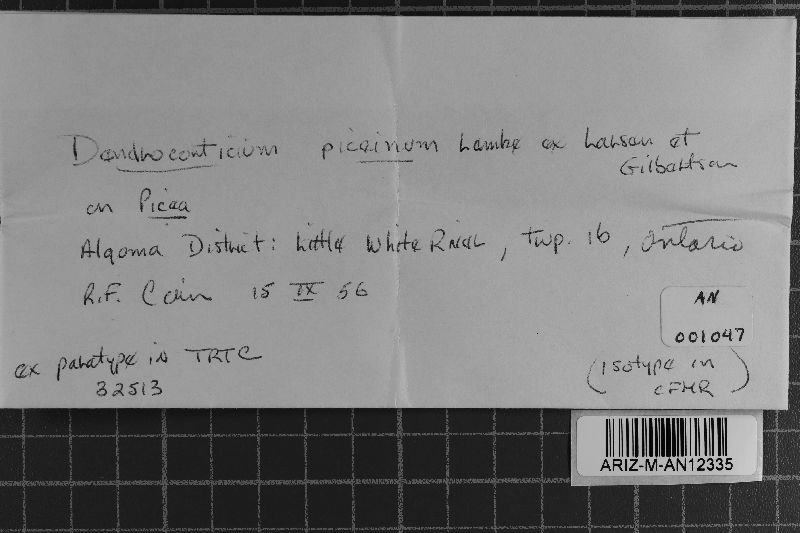 Dendrocorticium piceinum Lemke ex Larsen et
Gilbertson
on Picea
Algoma District: Little White River, twp. 16, Ontario
R.F. Cain 15 IX 56
AN
001047
ex paratype in TRTC
32513
(isotype in
CFMR)
ARIZ-M-AN12335